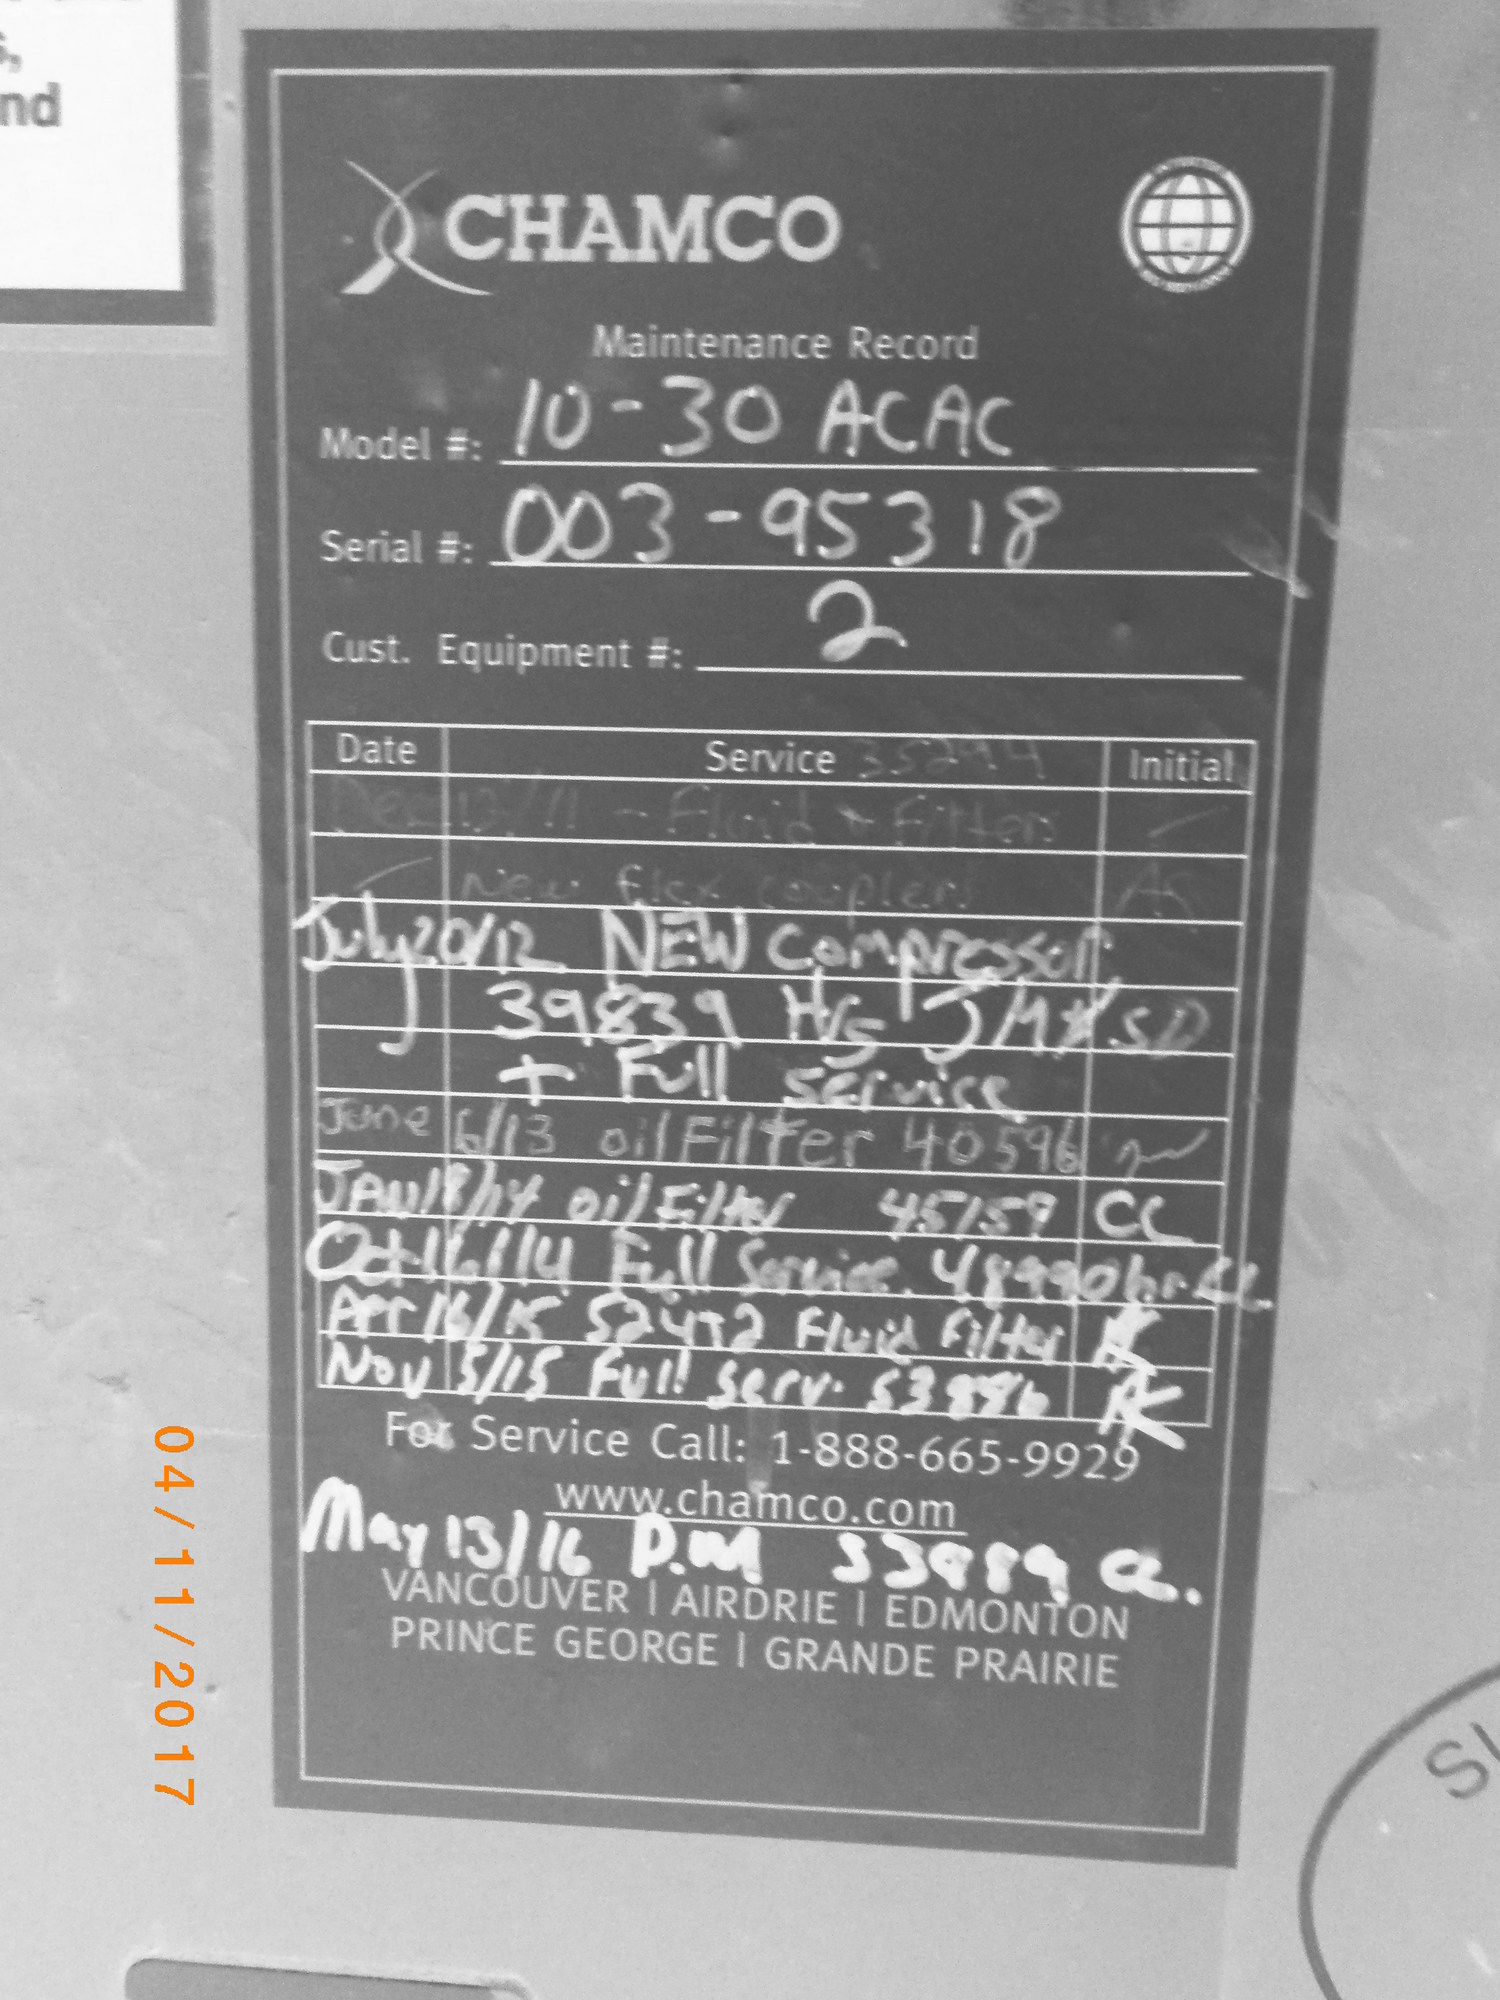 s,
nd
CHAMCO
Maintenance Record
Model #: 10-30 ACAC
Serial #: 003-95318
Cust. Equipment #: 2
Date Service 35294 Initial
Dec 13/11 - Fluid + Filters
New flex couplers AS
July 20/12 NEW Compressor
39839 Hrs JM # SD
+ Full Service
June 6/13 oil Filter 40596
JAN 18/14 oil Filter 45159 CC
Oct 16/14 Full Service. 48990 hr. CC
Apr 16/15 52432 Fluid Filter AK
Nov 5/15 Full serv. 53886 AK
For Service Call: 1-888-665-9929
www.chamco.com
May 13/16 P.M 53989 CC.
VANCOUVER | AIRDRIE | EDMONTON
PRINCE GEORGE | GRANDE PRAIRIE
04/11/2017